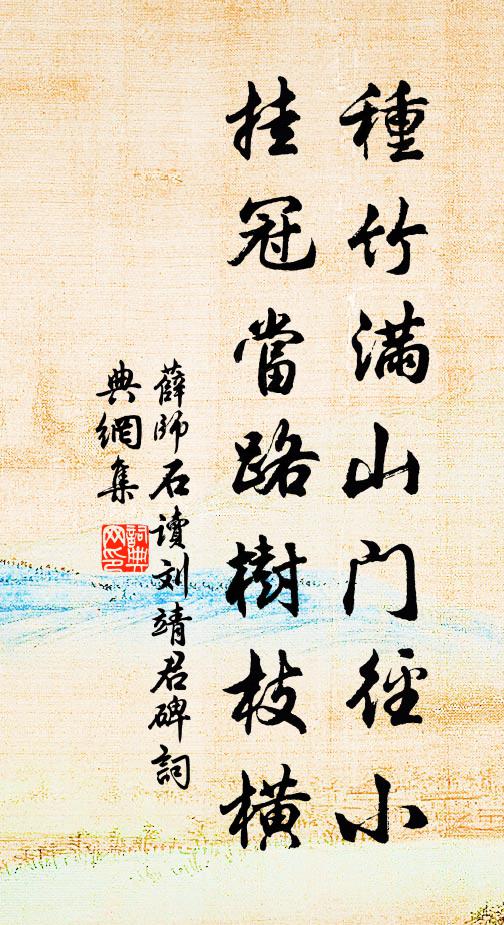 種竹滿山门徑小
挂冠當路樹枝橫
薛師石讀刘靖君碑詞
典網集
詞典网印